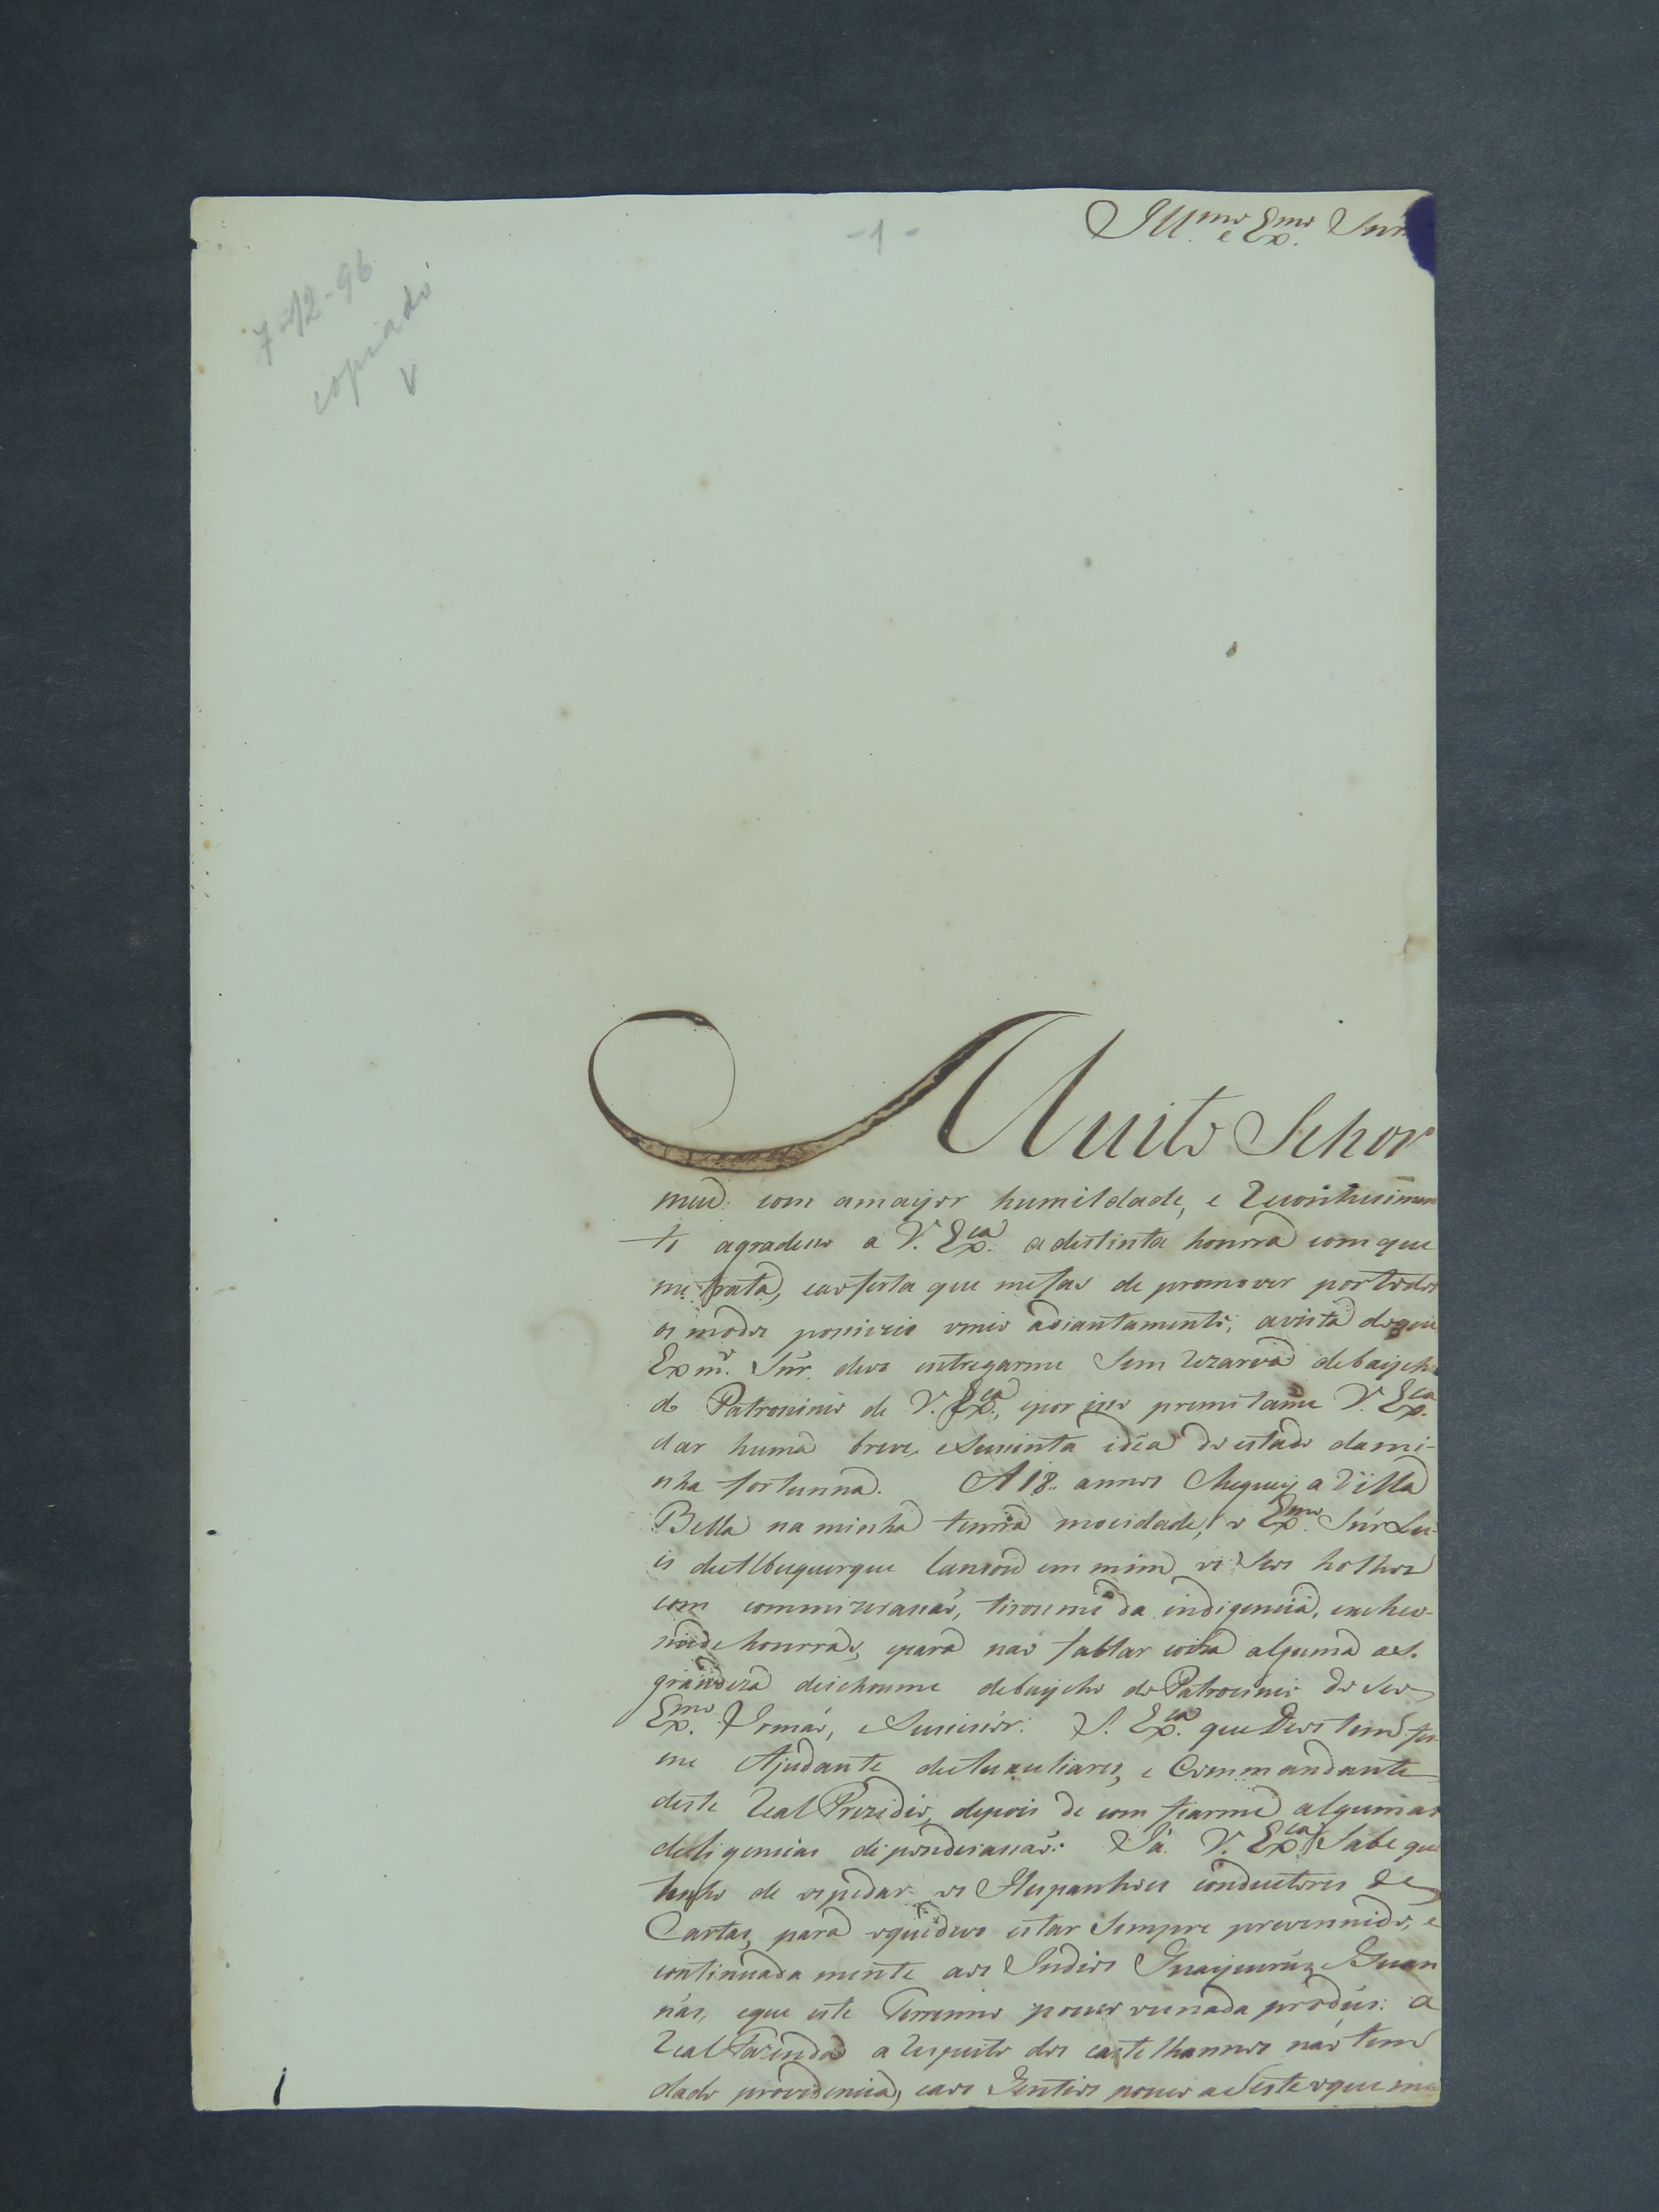 -1-
Ill.mo e Ex.mo Snr.
7-12-96
copiado
V
Muito Sehor
meu: com amayor humildade, e Reconhesimen
to agradeso a V. Ex.ca a destinta honrra com que
me trata, eaoferta que mefas de promover portodos
os modos posiveis omeo adiantamento; avista doque
Exm.o Snr. devo entregarme Sem Rezarva debaycho
do Patrosinio de V. Ex.ca, epor iso premitame V. Ex.ca
dar huma breve, eSusinta idéa do estado dami-
nha fortunna. A 18.. annos Cheguey a Villa
Bella na minha tenrra mosidade, o Ex.mo Snr Lu-
is deAlbuquerque lansou em mim os Seos holhos
com commizerasaõ, tiroume da indigencia, encheo-
mede honrras, epara naõ faltar coiza alguma as.
grandeza deichoume debaycho do Patrosinio do Seo
Ex.mo Irmaõ, eSusesór: S. Ex.ca que Deos tem fes
me Ajudante deAuxuliares, e Commandante
deste Real Prezidio, depois de com fiarme algumas
deligencias de ponderasaõ: Já V. Ex.ca Sabe que
tenho de ospedar os Hespanhoes conductores de
Cartas, para oquedevo estar Sempre prevennido, e
continuada mente aos Indios Guaycurús, e Guan
nás, eque este Terrenno pouco ounada prodús: a
Real Fazenda a Respeito dos castelhannos naõ tem
dado providencia, eaos Gentios pouco aSiste oque me
1